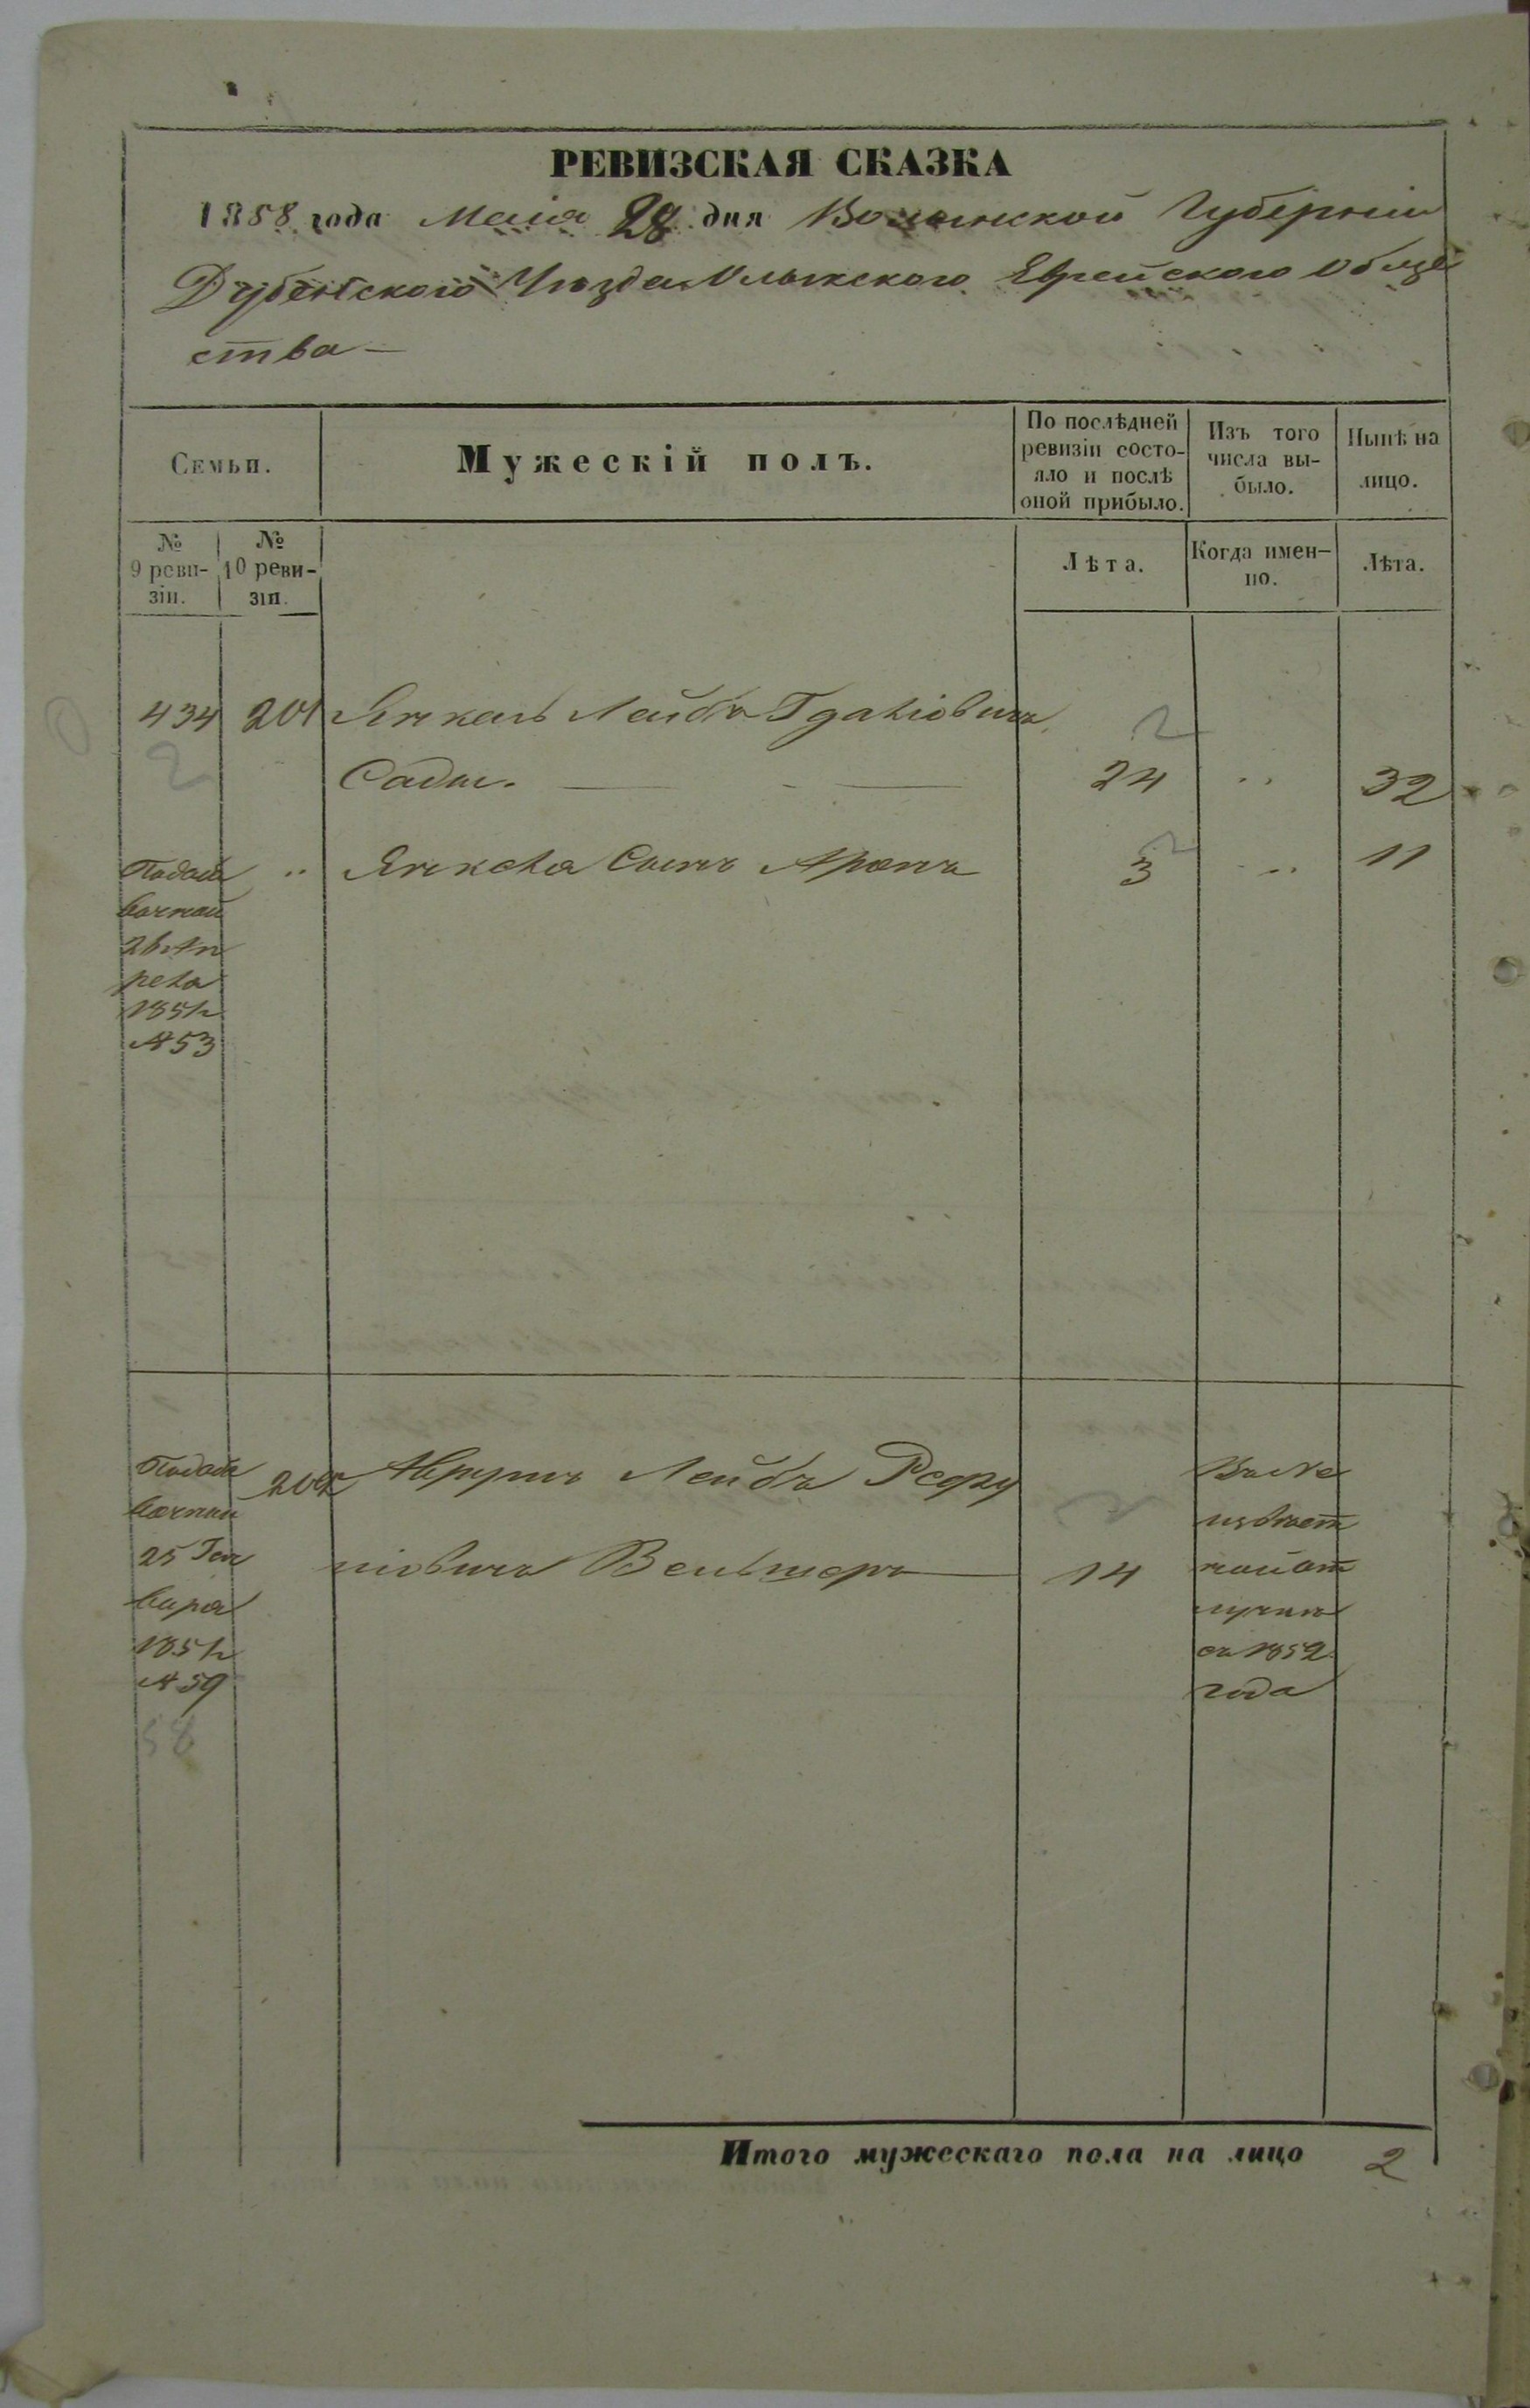 РЕВИЗСКАЯ СКАЗКА
1858 года Маія 28 дня Волынской Губерніи
Дубенского Уѣзда Олыкского Еврейского Обще
ства —
Семьи.
Мужескій полъ.
По послѣдней ревизіи состо-
яло и послѣ оной прибыло.
Изъ того числа вы-
было.
Нынѣ на лицо.
№ 9 реви-
зіи.
№ 10 реви-
зіи.
Лѣта.
Когда имен-
но.
Лѣта.
434 201 Янкель Лейба Гдаліовичъ
2
2
Сады. 24 „ 32
Подоба „ Янкеля Сынъ Аронъ 3 „ 11
2
вочной
26 Ап
реля
1851
№ 53
Подоба 202 Лейба
вочной
25 Ген
вара
1851
№ 59
58
ніовичъ 14
Въ Не
извѣст
ной от
лучкѣ
съ 1852
года
Итого мужескаго пола на лицо 2